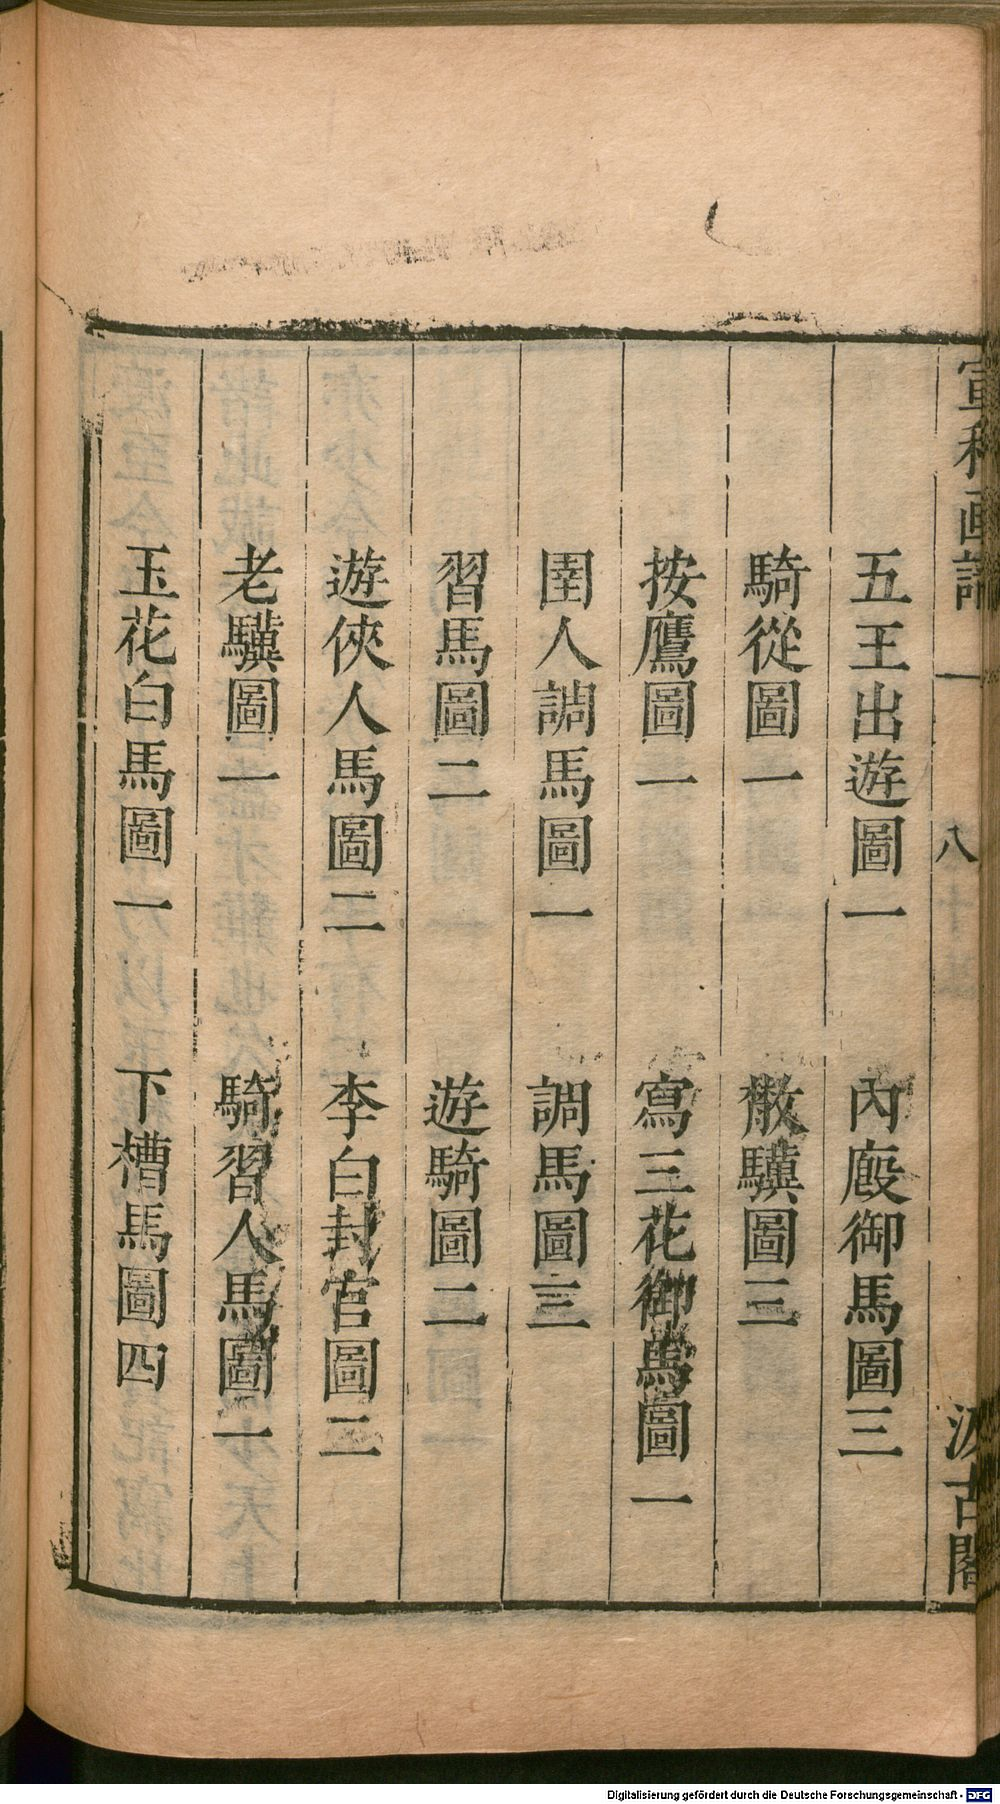 宣和画譜 一 八 汲古閣
五王出遊圖一 内廄御馬圖三
騎從圖一 散驥圖三
按鷹圖一 寫三花御馬圖一
圉人調馬圖一 調馬圖三
習馬圖二 遊騎圖二
遊俠人馬圖二 李白封官圖二
老驥圖一 騎習人馬圖一
玉花白馬圖一 下槽馬圖四
Digitalisierung gefördert durch die Deutsche Forschungsgemeinschaft - DFG